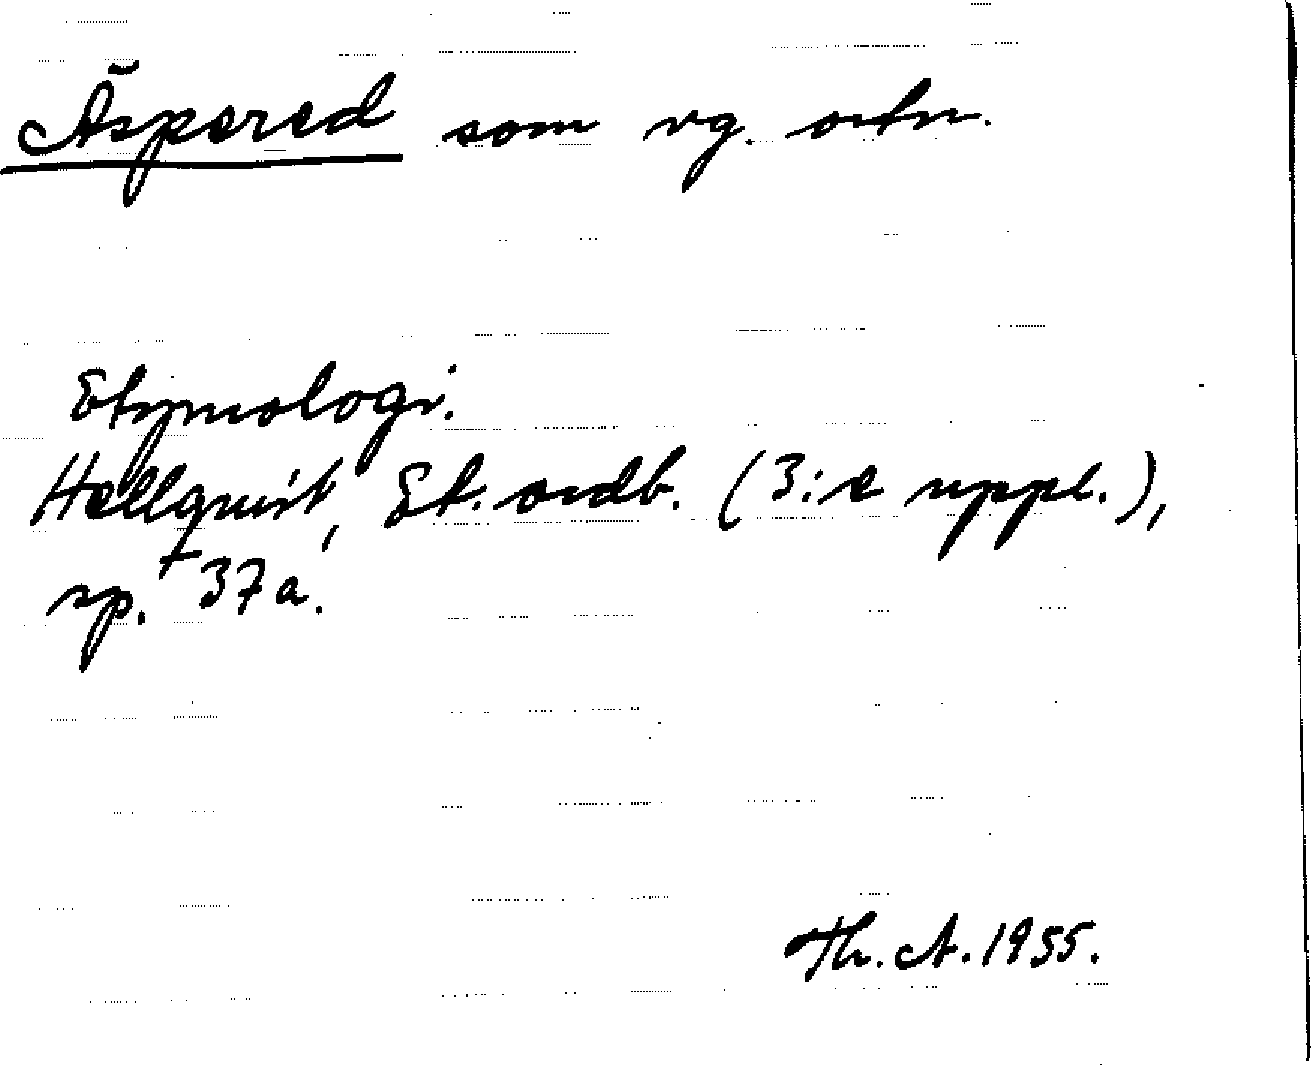 Äspered som vg. ortn.
Etymologi.
Hellquist, Et. ordb. (3:e uppl.),
sp. 37 a.
Th. A. 1955.